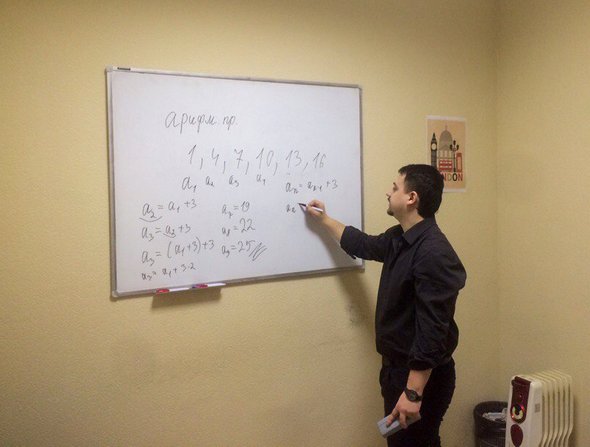 арифм. пр.
1, 4, 7, 10, 13, 16
a₁ a₂ a₃ a₄
a₂ = a₁ + 3
a₃ = a₂ + 3
a₃ = (a₁ + 3) + 3
a₃ = a₁ + 3·2
a₇ = 19
a₈ = 22
a₉ = 25
aₙ = aₙ₋₁ + 3
LONDON